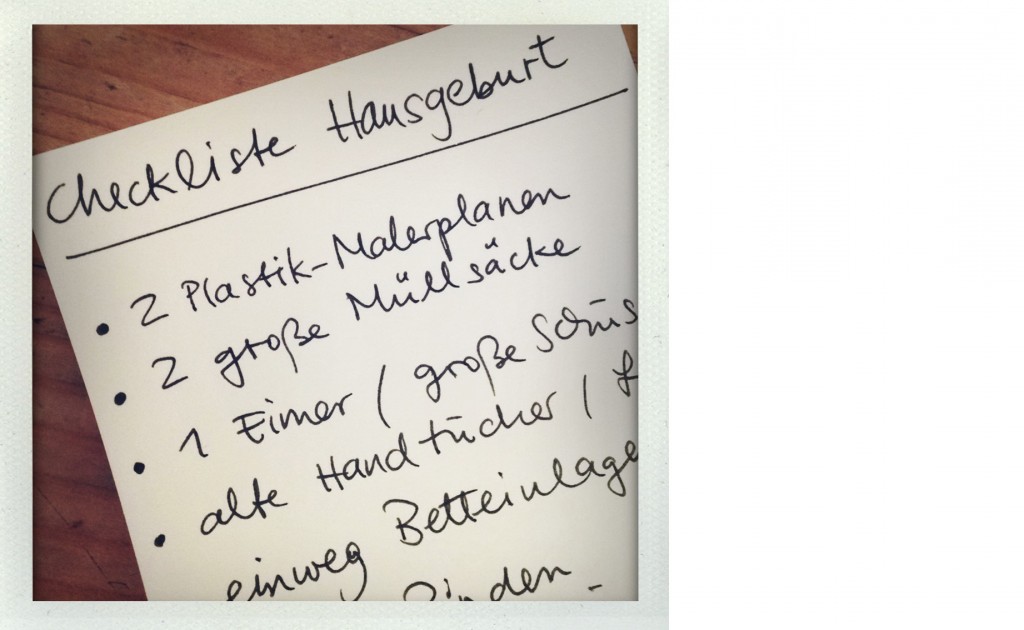 Checkliste Hausgeburt
• 2 Plastik-Malerplanen
• 2 große Müllsäcke
• 1 Eimer / große Schüs
• alte Handtücher /
einweg Betteinlage
Binden